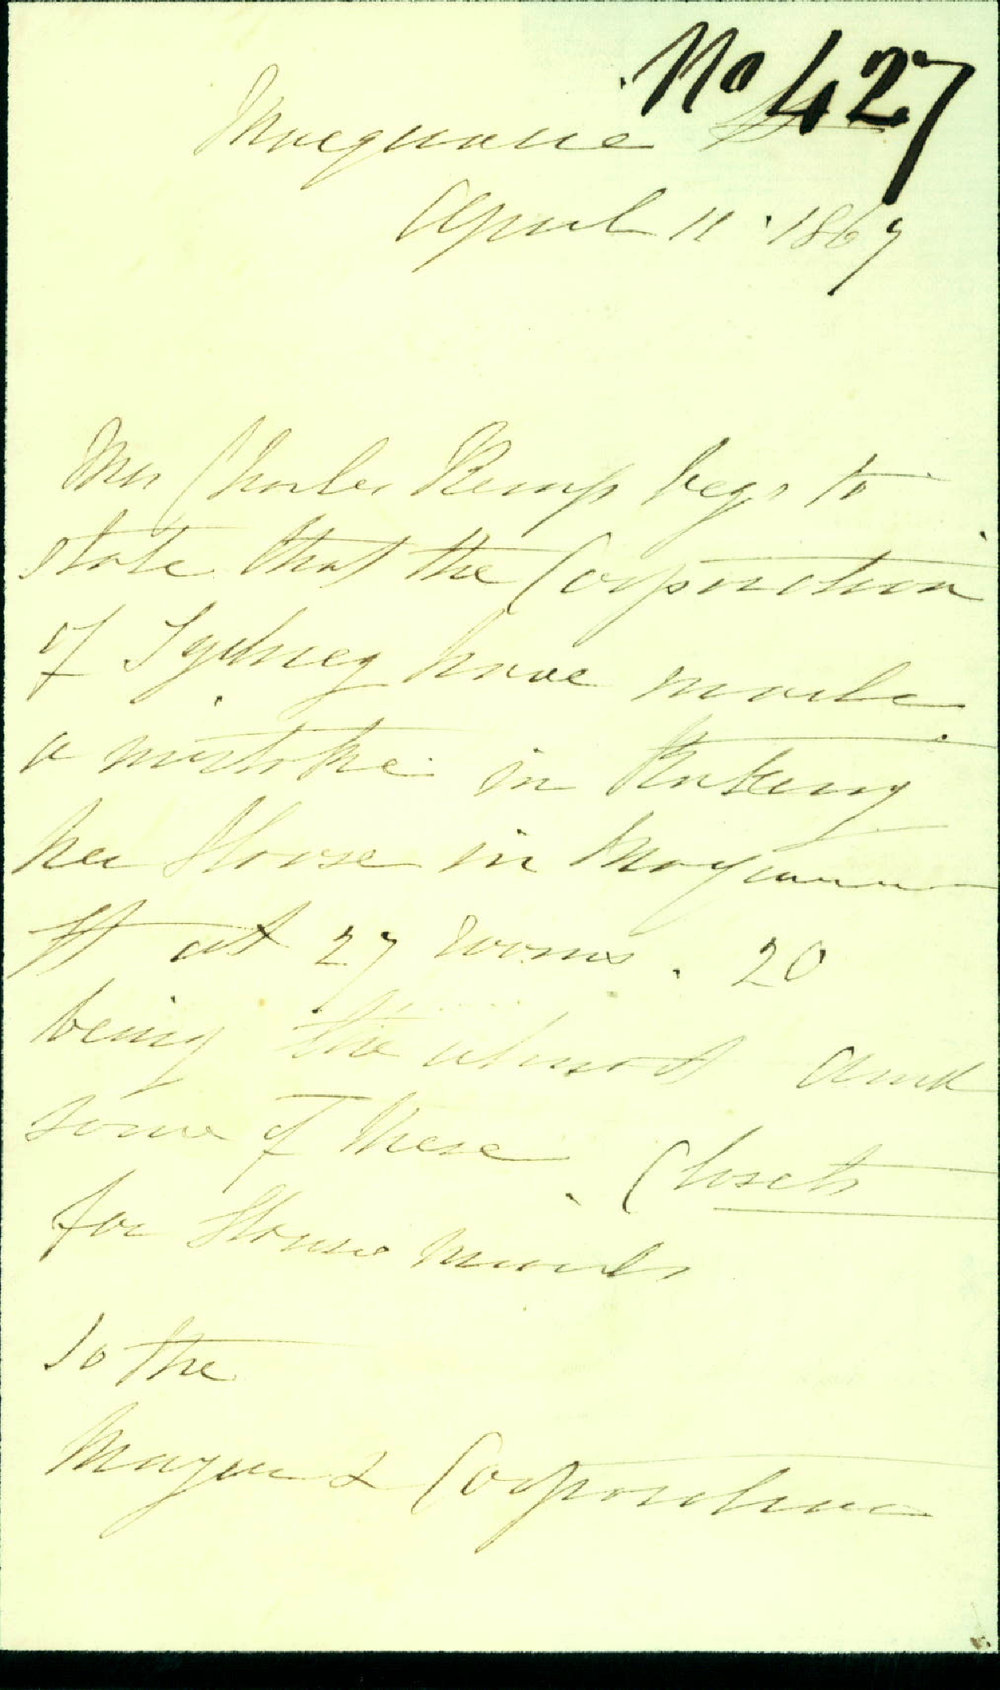 No 427
Macquarie St
April 11. 1867
Mrs Charles Kemp begs to
state that the Corporation
of Sydney have made
a mistake in Rating
her House in Macquarie
St at 27 rooms. 20
being the utmost and
some of these Closets
for House maids
To the
Mayor & Corporation